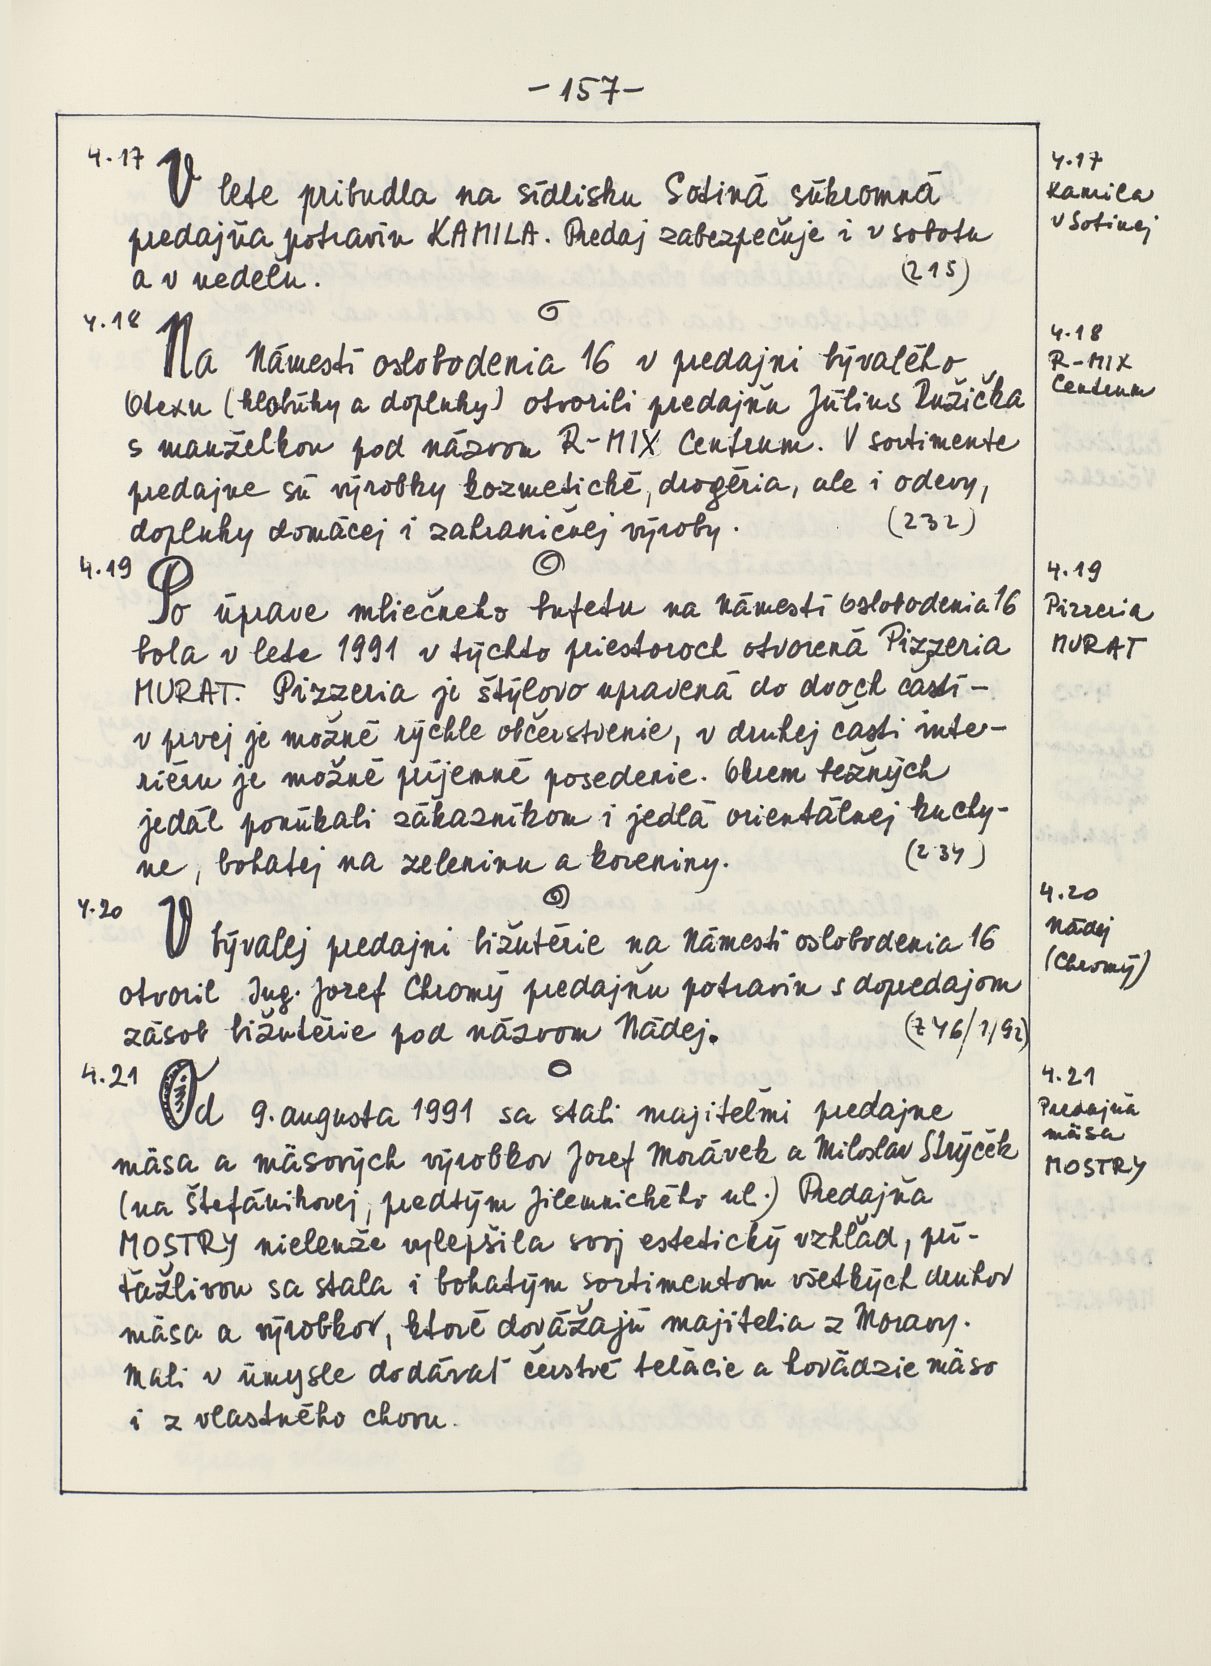 -157-
4.17
V lete pribudla na sídlisku Sotiná súkromná
predajňa potravín KAMILA. Predaj zabezpečuje i v sobotu
a v nedeľu. (215)
4.17
Kamila
v Sotinej
4.18
Na Námestí oslobodenia 16 v predajni bývalého
Otexu (klobúky a doplnky) otvorili predajňu Július Ružička
s manželkou pod názvom R-MIX Centrum. V sortimente
predajne sú výrobky kozmetické, drogéria, ale i odevy,
doplnky domácej i zahraničnej výroby. (232)
4.18
R-MIX
Centrum
4.19
Po úprave mliečneho bufetu na Námestí oslobodenia 16
bola v lete 1991 v týchto priestoroch otvorená Pizzeria
MURAT. Pizzeria je štýlovo upravená do dvoch častí -
v prvej je možné rýchle občerstvenie, v druhej časti inte-
riéru je možné príjemné posedenie. Okrem bežných
jedál ponúkali zákazníkom i jedlá orientálnej kuchy-
ne, bohatej na zeleninu a koreniny. (234)
4.19
Pizzeria
MURAT
4.20
V bývalej predajni bižutérie na Námestí oslobodenia 16
otvoril Ing. Jozef Chromý predajňu potravín s dopredajom
zásob bižutérie pod názvom Nádej. (Z 46/1/92)
4.20
Nádej
(Chromý)
4.21
Od 9. augusta 1991 sa stali majiteľmi predajne
mäsa a mäsových výrobkov Jozef Morávek a Miloslav Strýček
(na Štefánikovej, predtým Jilemnického ul.) Predajňa
MOSTRY nielenže vylepšila svoj estetický vzhľad, prí-
ťažlivou sa stala i bohatým sortimentom všetkých druhov
mäsa a výrobkov, ktoré dovážajú majitelia z Moravy.
Mali v úmysle dodávať čerstvé teľacie a hovädzie mäso
i z vlastného chovu.
4.21
Predajňa
mäsa
MOSTRY